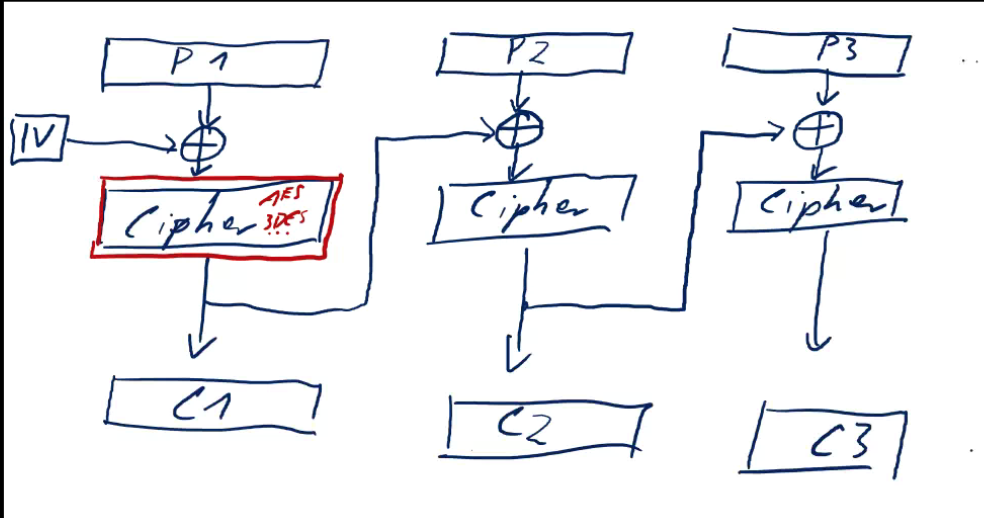 P1
P2
P3
IV
Cipher
AES
3DES
...
Cipher
Cipher
C1
C2
C3